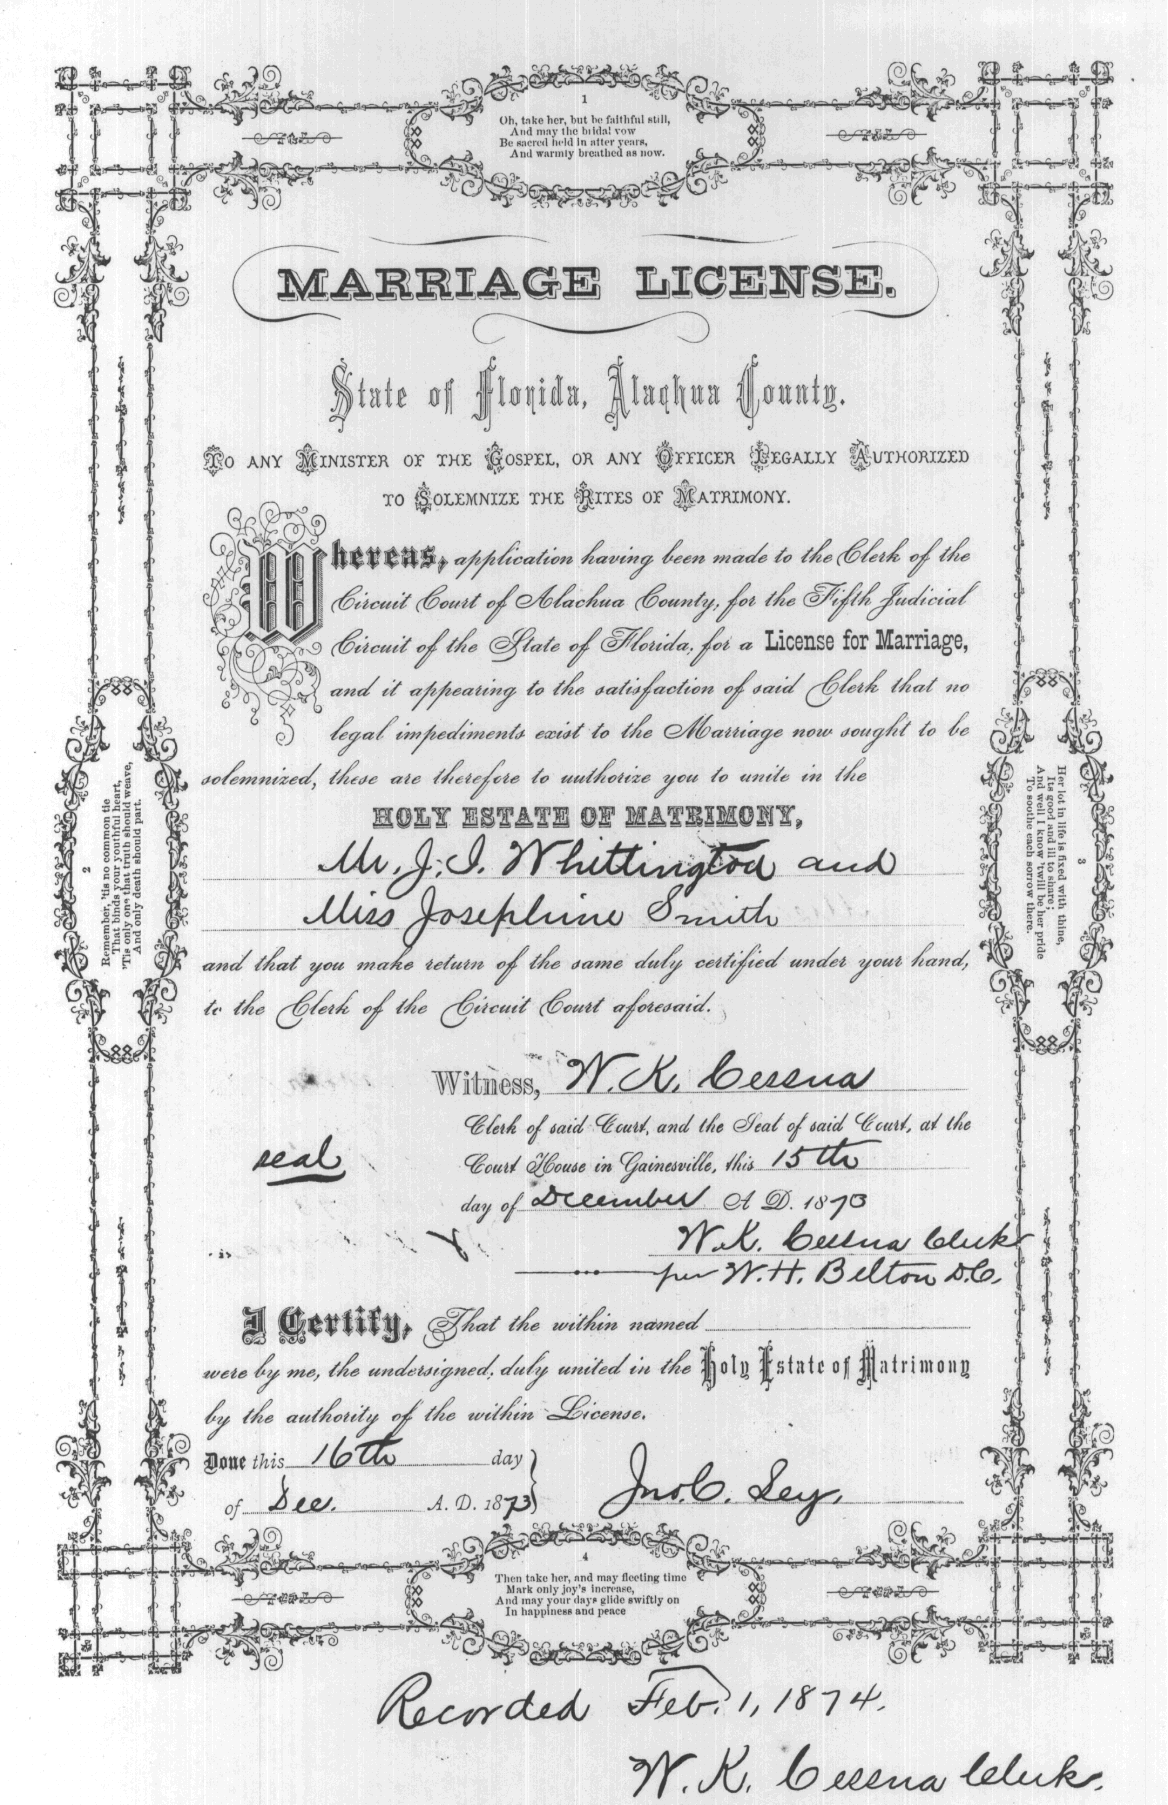 1
Oh, take her, but be faithful still,
And may the bridal vow
Be sacred held in after years,
And warmly breathed as now.
MARRIAGE LICENSE.
State of Florida, Alachua County.
TO ANY MINISTER OF THE GOSPEL, OR ANY OFFICER LEGALLY AUTHORIZED
TO SOLEMNIZE THE RITES OF MATRIMONY.
Whereas, application having been made to the Clerk of the
Circuit Court of Alachua County, for the Fifth Judicial
Circuit of the State of Florida, for a License for Marriage,
and it appearing to the satisfaction of said Clerk that no
legal impediments exist to the Marriage now sought to be
solemnized, these are therefore to authorize you to unite in the
HOLY ESTATE OF MATRIMONY,
Mr. J. I. Whittington and
Miss Josephine Smith
and that you make return of the same duly certified under your hand,
to the Clerk of the Circuit Court aforesaid.
2
Remember, 'tis no common tie
That binds your youthful heart,
'Tis only one that truth should weave,
And only death should part.
3
Her lot in life is fixed with thine,
Its good and ill to share;
And well I know 'twill be her pride
To soothe each sorrow there.
Witness, W. K. Cessna
Clerk of said Court, and the Seal of said Court, at the
seal
Court House in Gainesville, this 15th
day of December A D. 1873
W. K. Cessna Clerk
per W. H. Belton D.C.
I Certify, That the within named
were by me, the undersigned, duly united in the Holy Estate of Matrimony
by the authority of the within License.
Done this 16th day
of Dec. A. D. 1873
Jno. C. Ley.
4
Then take her, and may fleeting time
Mark only joy's increase,
And may your days glide swiftly on
In happiness and peace
Recorded Feb. 1, 1874.
W. K. Cessna Clerk.